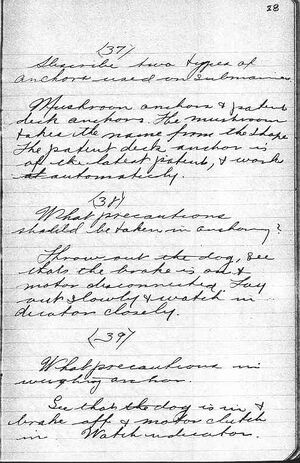 28
(37)
Describe two types of
anchors used on submarines.
Mushroom anchors & patent
deck anchors. The mushroom
takes its name from the shape
The patent deck anchor is
of the latest patent, & work
automatically.
(38)
What precautions
should be taken in anchoring?
Throw out the dog, see
that the brake is on &
motor disconnected, Pay
out slowly & watch in-
dicator closely.
(39)
What precautions in
weighing anchor.
See that the dog is in &
brake off & motor clutch
in. Watch indicator.